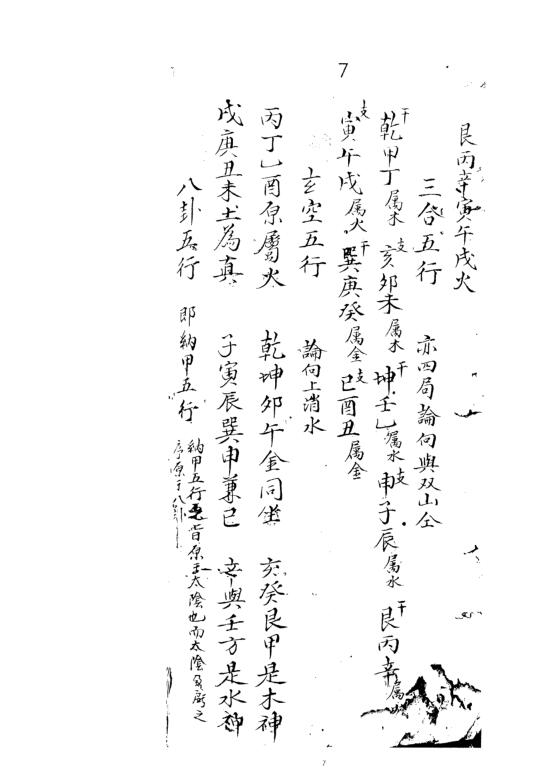 7
艮丙辛寅午戌火
三合五行 亦四局論向與双山仝
乾甲丁属木 亥卯未属木 坤壬乙属水 申子辰属水 艮丙辛属
干 支 干 支 干
寅午戌属火 巽庚癸属金 巳酉丑属金
支 干 支
玄空五行 論向上消水
丙丁乙酉原屬火 乾坤卯午金同坐 亥癸艮甲是木神
戌庚丑未土為真 子寅辰巽申兼巳 辛與壬方是水神
八卦五行 即納甲五行 納甲五行 皆原 太陰也而太陰
序原于八卦
7